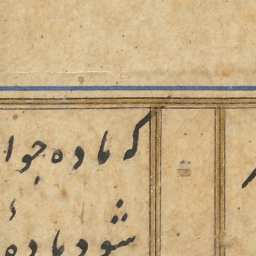 که ماده جوا
شود مادهٔ